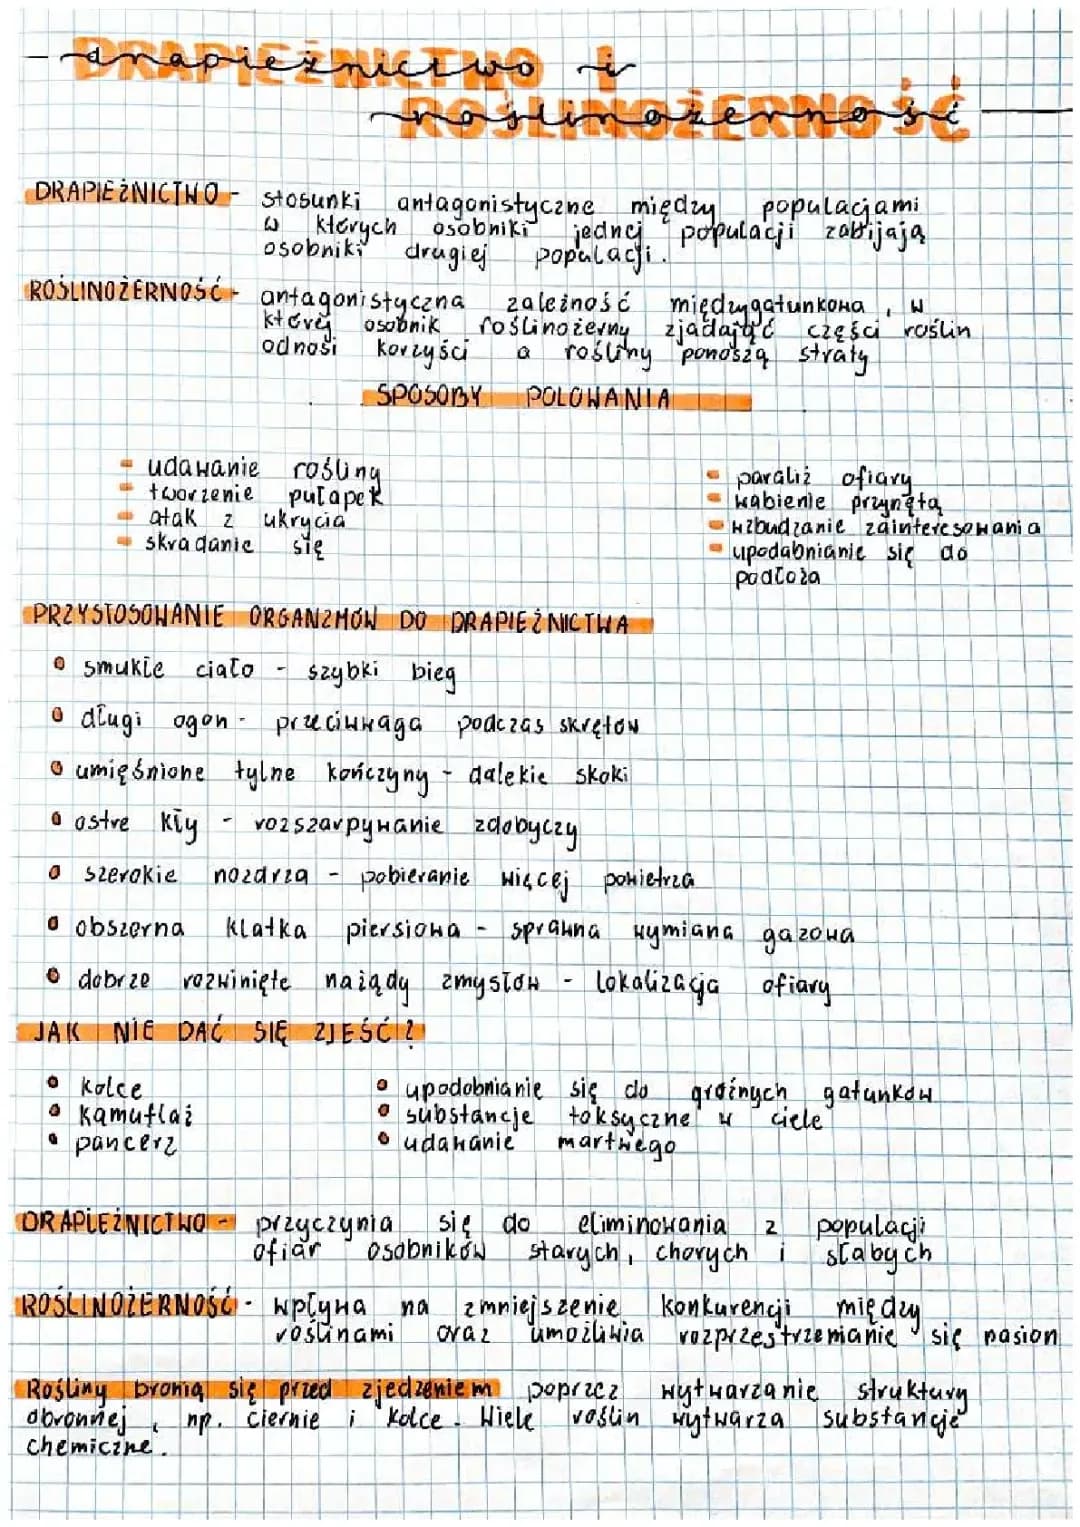 drapieżnictwo i
roślinożerność
DRAPIEŻNICTWO - stosunki antagonistyczne między populacjami
w których osobniki jednej populacji zabijają
osobniki drugiej populacji.
ROŚLINOŻERNOŚĆ - antagonistyczna zależność międzygatunkowa, w
której osobnik roślinożerny zjadając części roślin
odnosi korzyści a rośliny ponoszą straty
SPOSOBY POLOWANIA
- udawanie rośliny
- tworzenie pułapek
- atak z ukrycia
- skradanie się
- paraliż ofiary
- wabienie przynętą
- wzbudzanie zainteresowania
- upodabnianie się do
podłoża
PRZYSTOSOWANIE ORGANZMÓW DO DRAPIEŻNICTWA
• smukłe ciało - szybki bieg
• długi ogon - przeciwwaga podczas skrętów
• umięśnione tylne kończyny - dalekie skoki
• ostre kły - rozszarpywanie zdobyczy
• szerokie nozdrza - pobieranie więcej powietrza
• obszerna klatka piersiowa - sprawna wymiana gazowa
• dobrze rozwinięte nażądy zmysłów - lokalizacja ofiary
JAK NIE DAĆ SIĘ ZJEŚĆ?
• kolce
• kamuflaż
• pancerz
• upodobnianie się do groźnych gatunków
• substancje toksyczne w ciele
• udawanie martwego
DRAPIEŻNICTWO - przyczynia się do eliminowania z populacji
ofiar osobników starych, chorych i słabych
ROŚLINOŻERNOŚĆ - wpływa na zmniejszenie konkurencji między
roślinami oraz umożliwia rozprzestrzenianie się nasion
Rośliny bronią się przed zjedzeniem poprzez wytwarzanie struktury
obronnej, np. ciernie i kolce. Wiele roślin wytwarza substancje
chemiczne.